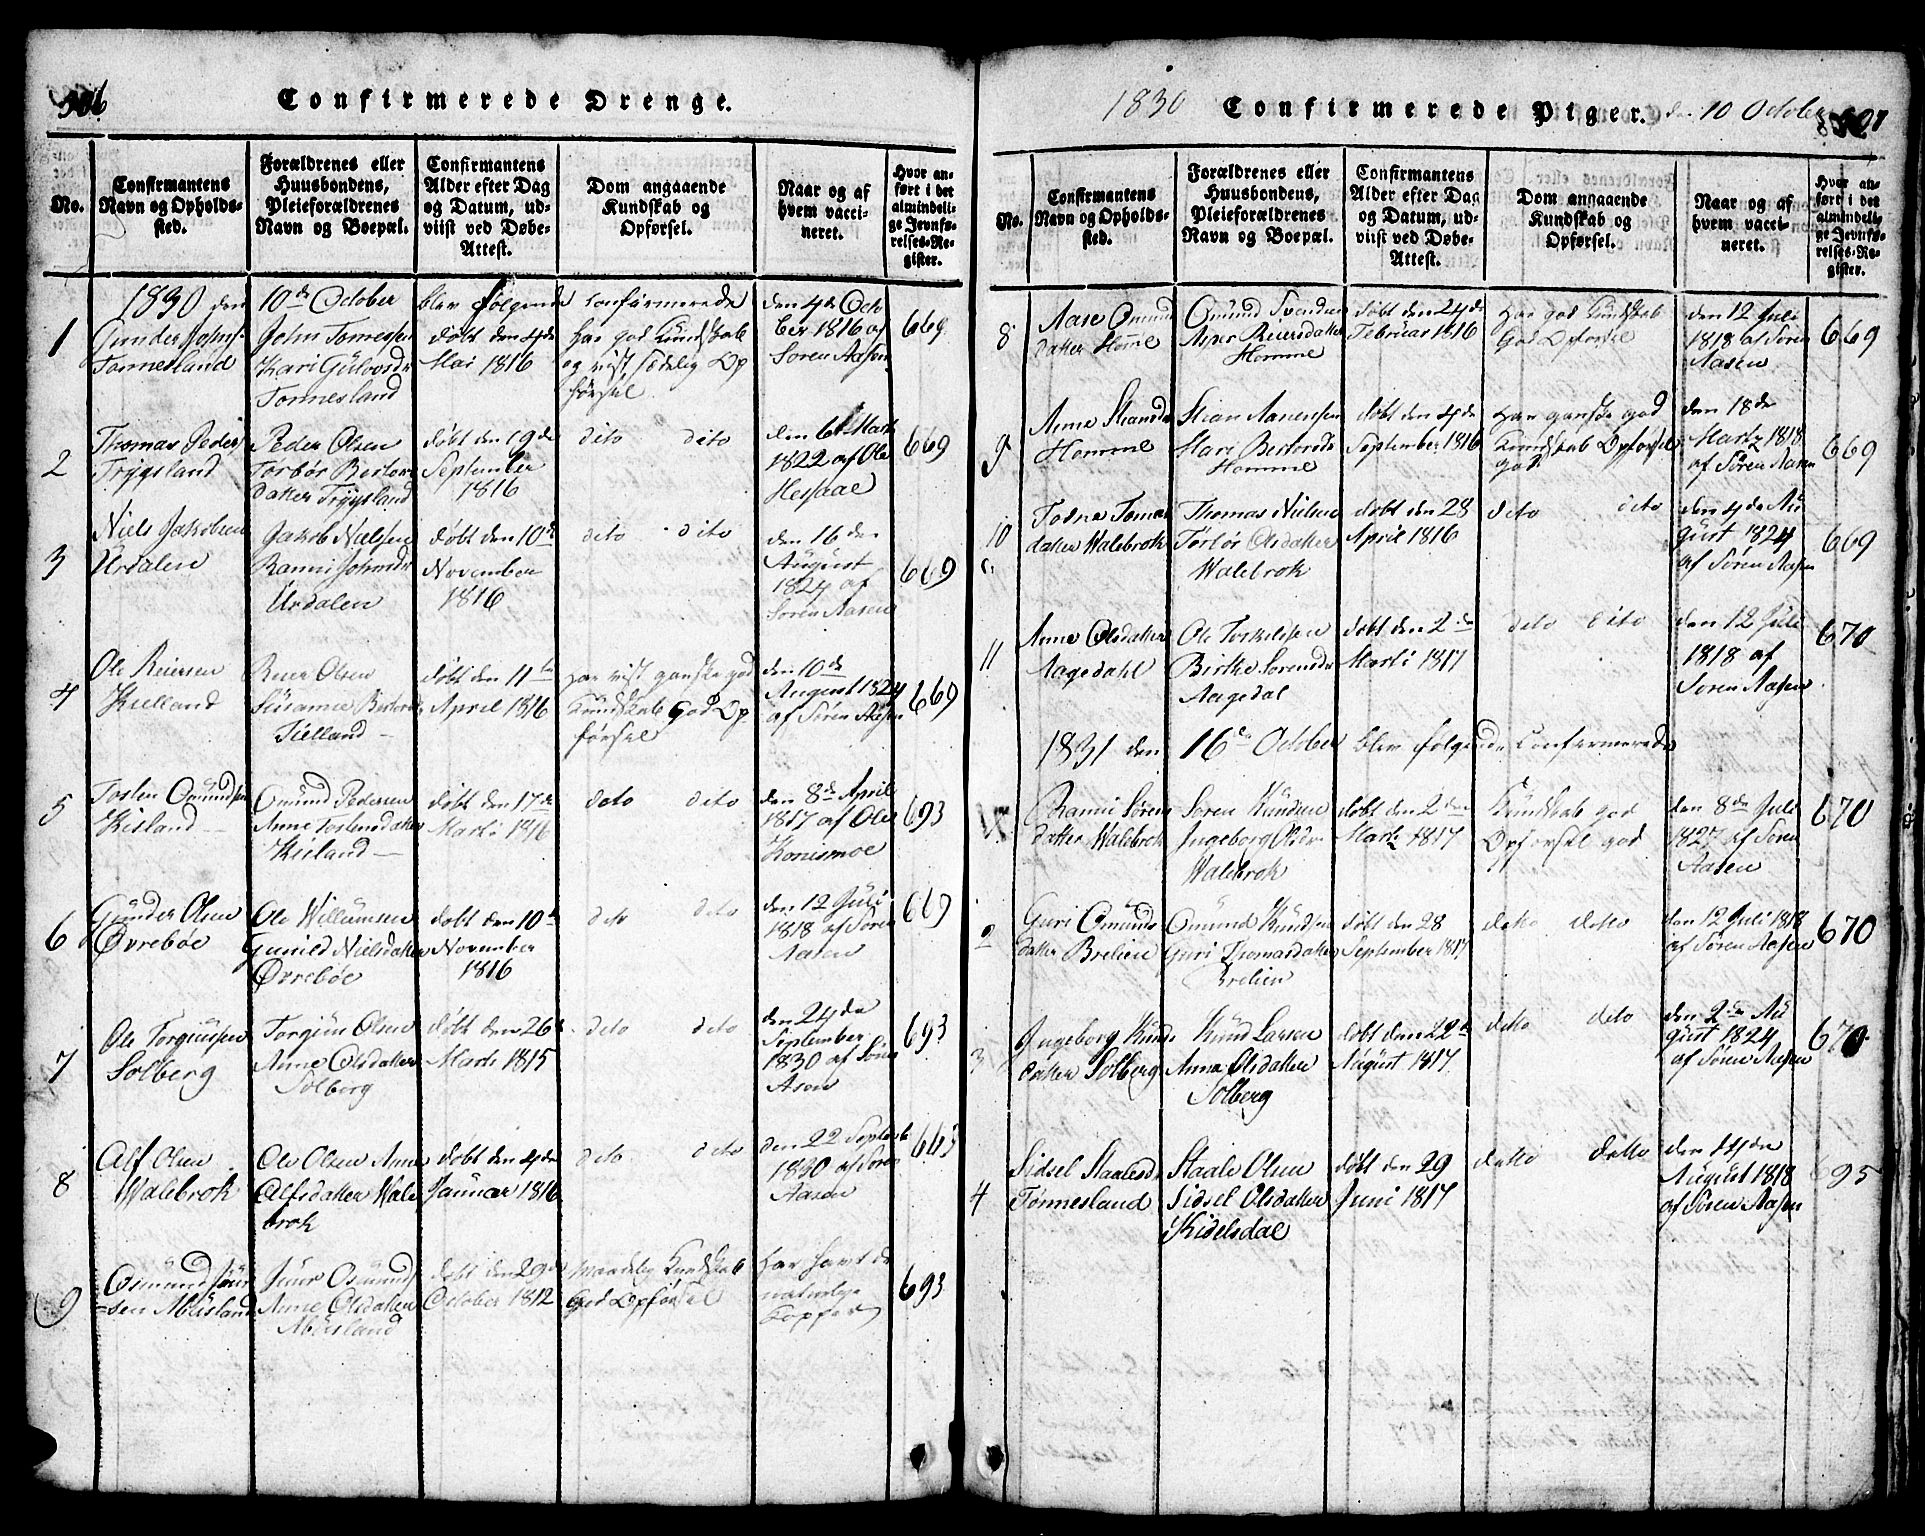 506
Confirmerede Drenge.
No.
Confirmantens
Navn og Opholds-
sted.
Forældrenes eller
Huusbondens,
Pleieforældrenes
Navn og Boepæl.
Confirmantens
Alder efter Dag
og Datum, ud-
viist ved Døbe-
Attest.
Dom angaaende
Kundskab og
Opførsel.
Naar og af
hvem vacci-
neret.
Hvor an-
ført i det
almindeli-
ge Jevnfø-
relses-Re-
gister.
1830 den 10de October blev følgende confirmerede
1
Gunder Johns.
Tonnesland
John Tonnessen
Kari Gulovsdr
Tonnesland
døbt den 4de
Mai 1816
Har god Kundskab
og vist sædelig Op
førsel
den 4de Octo
ber 1816 af
Soren Aasen
669
2
Thomas Peders
Trygsland
Peder Olsen
Torbör Bertous
datter Trygsland
døbt den 19de
September
1816
dito dito
den 6te Marti
1822 af Ole
Hessaae
669
3
Niels Jakobsen
Urdalen
Jakob Nielsen
Ranni Johnsdr
Urdalen
døbt den 10de
November
1816
dito dito
den 16den
August
1824 af
Soren Aasen
669
4
Ole Reiersen
Kielland
Reier Olsen
Susanne
Tielland
døbt den 11te
April 1816
Har vist ganske god
Kundskab God Op
førsel
den 10de
August 1824
af Søren Aasen
669
5
Tosten Omundsen
Kisland
Omund Pedersen
Anne Tostensdatter
Kisland
døbt den 17de
Marti 1816
deto deto
den 8de April
1817 af Ole
Konismoe
693
6
Gunder Olsen
Øvrebøe
Ole Willumsen
Gunild Nielsdatter
Øvrebøe
døbt den 10de
November
1816
deto deto
den 12 Juli
1818 af Sören
Aasen
669
7
Ole Torgiussen
Solberg
Torgius Olsen
Anne Olsdatter
Solberg
døbt den 26de
Marti 1815
deto deto
den 24de
September
1830 af Sören
Asen
693
8
Alf Olsen
Walebrok
Ole Olsen Anne
Alfsdatter Wale
brok
døbt den 4de
Januar 1816
deto deto
den 22 Septemb
1830 af Soren
Aasen
9
Osmund Juur
sen Abusland
Juur Osmunds
Anne Olsdatter
Abusland
døbt den 29de
October 1812
Maadelig Kundskab
God Opførsel
Har havt de
naturlige
Kopper
693
1830 Confirmerede Piger. den 10 October
507
No.
Confirmantens
Navn og Opholds-
sted.
Forældrenes eller
Huusbondens,
Pleieforældrenes
Navn og Boepæl.
Confirmantens
Alder efter Dag
og Datum, ud-
viist ved Døbe-
Attest.
Dom angaaende
Kundskab og
Opførsel.
Naar og af
hvem vacci-
neret.
Hvor an-
ført i det
almindeli-
ge Jevnfø-
relses-Re-
gister.
8
Aase Omund
datter Homme
Omund Svendsen
Reiersdatter
Homme
døbt den 24de
Februar 1816
Har god Kundskab
God Opførsel
den 12 Juli
1818 af Sören
Aasen
669
9
Anne Stiansdr
Homme
Stian Aanensen
Mari
Homme
døbt den 4de
September 1816
Har ganske god
Kundskab Opførsel
god
den 18de
Marti 1818
af Søren Aasen
669
10
Todne Tomas
datter Walebrok
Thomas Nielsen
Torbör Olsdatter
Walebrok
døbt den 28
April 1816
deto deto
den 4de Au
gust 1824
af Søren Aasen
669
11
Anne Olsdatter
Aagedahl
Ole Torkildsen
Birthe Sorensdr
Aagedal
døbt den 2de
Marti 1817
deto dito
den 12 Juli
1818 af
Soren Aasen
670
1831 den 16de October blev folgende Confirmerede
Ranni Sörens
datter Walebrok
Soren Knudsen
Ingeborg Olsdr
Walebrok
døbt den 2den
Marti 1817
Kundskab god
Opførsel god
den 8de Juli
1827 af Sören
Aasen
670
2
Guri Omunds
datter Brelien
Omund Knudsen
Guri Thomasdatter
Brelien
døbt den 28
September 1817
deto deto
den 12 Juli 1818
af Søren Aasen
670
3
Ingeborg Knuds
datter Solberg
Knud Larsen
Anna Olsdatter
Solberg
døbt den 22de
August 1817
deto deto
den 2den Au
gust 1824
af Søren Aasen
670
4
Sidsel Staalesdr
Tønnesland
Staale Olsen
Sidsel Olsdatter
Kidelsdal
døbt den 29
Juni 1817
detto detto
den 14de
August 1818
af Søren Aasen
695